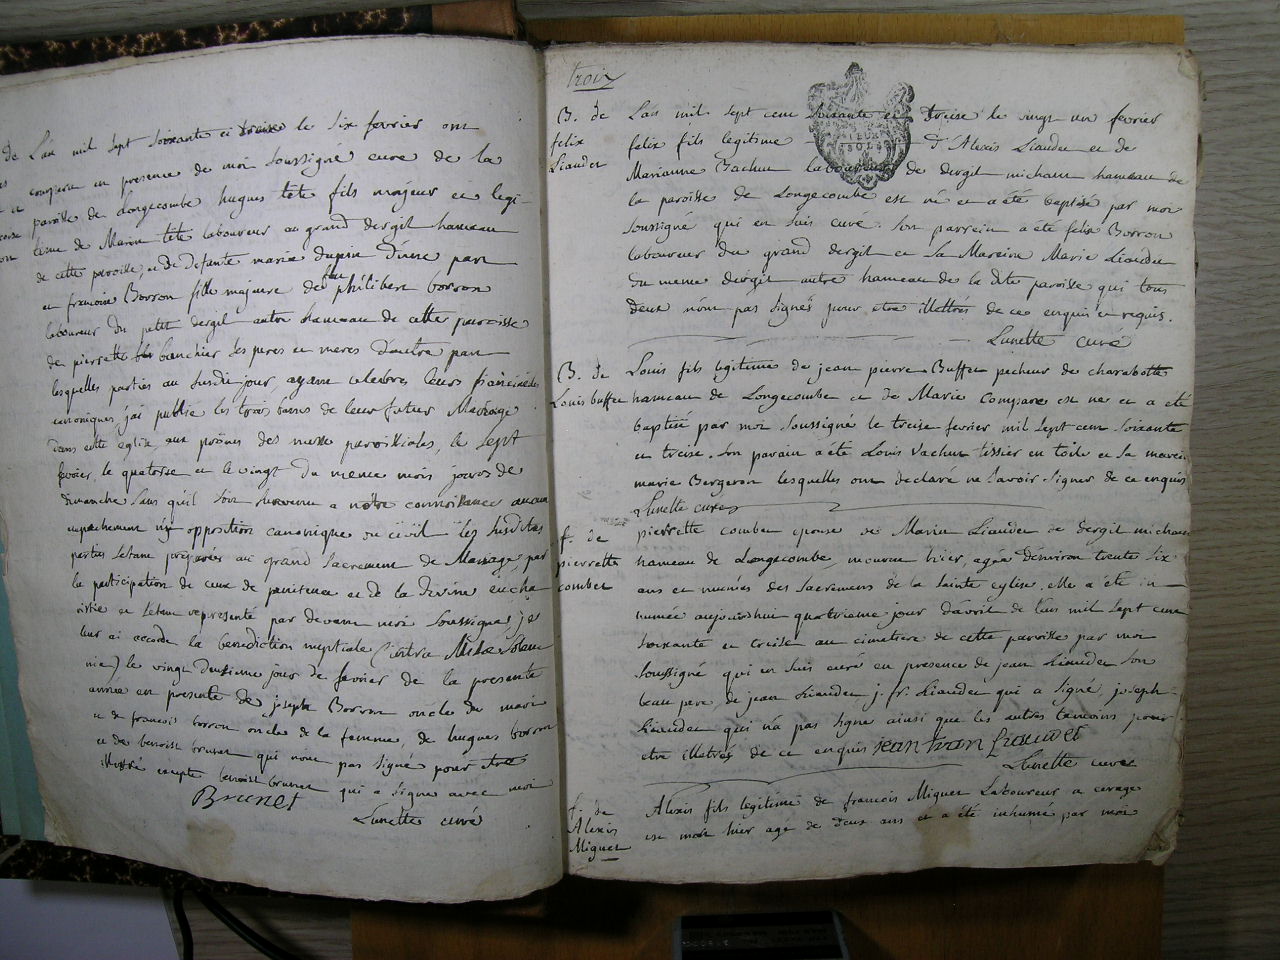 de L'an mil sept soixante et treise le six fevrier ont
comparu en presence de moi soussigné curé de la
paroisse de Longecombe hugues tête fils majeur et legi-
time de Marin tête laboureur au grand dergit hameau
de cette paroisse, et de defunte marie dupin d'une part
et francoise Borron fille majeure de feu philibert borron
laboureur du petit dergit autre hameau de cette paroisse
de pierrette banchier ses peres et meres d'autre part
lesquelles parties au susdit jour, ayant celebrés leurs fiancialles
canoniques j'ai publié les trois bans de leur futur Mariage
dans cette eglise, aux prônes des messe paroissiales, le sept
fevrier, le quatorse et le vingt du meme mois jours de
dimanche sans qu'il soit survenu a notre connoissance aucun
empechement ny opposition canonique ou civil les susdites
parties s'etant préparés au grand sacrement de Mariage, par
la participation de ceux de penitence et de la divine eucha
ristie et s'etant représenté par devant moi soussigné, je
leur ai accordé la benediction nuptiale (
) le vingt deuxieme jour de fevrier de la presente
année en presente de joseph Borron oncle du mari
et de francois borron oncle de la femme, de hugues borron
et de benoist brunet qui n'ont pas signé pour etre
illettré excepté benoist brunet qui a signé avec moi
Brunet
Lunette curé
trois
B. de
felix
Liaudet
L'an mil sept cent soixante et treise le vingt un fevrier
felix fils legitime d'Alexis Liaudet et de
Marianne Vachet laboureur de dergit michaut hameau de
la paroisse de Longecombe est né et a été baptisé par moi
soussigné qui en suis curé. son parrein a été felix Borron
laboureur du grand dergit et sa Mareine Marie Liaudet
du meme dergit autre hameau de la dite paroisse qui tous
deux n'ont pas signés pour etre illettrés de ce enquis et requis.
Lunette curé
B. de
Louis buffet
Louis fils legitime de jean pierre Buffet pecheur de charabotte
hameau de Longecombe et de Marie Compare est né et a été
baptisé par moi soussigné le treise fevrier mil sept cent soixante
et treise. son parain a été Louis Vachet tissier en toile et sa mareine
marie Bergeron lesquelles ont declaré ne savoir signer de ce enquis
Lunette curé
f. de
pierrette
combet
pierrette combet epouse de Marin Liaudet de dergit michaut
hameau de Longecombe, mourut hier, agée d'environ trente six
ans et munies des sacremens de la sainte eglise, elle a été in-
humée aujourdhui quatrieme jour d'avril de l'an mil sept cent
soixante et treise au cimetiere de cette paroisse par moi
soussigné qui en suis curé en presence de jean Liaudet son
beau pere, de jean Liaudet j. fr. Liaudet qui a signé, joseph
Liaudet qui n'a pas signe ainsi que les autres temoins pour
etre illetrés de ce enquis jean fran Liaudet
Lunette curé
f. de
Alexis
Miguet
Alexis fils legitime de francois Miguet Laboureur a cevage
est mort hier agé de deux ans et a été inhumé par moi